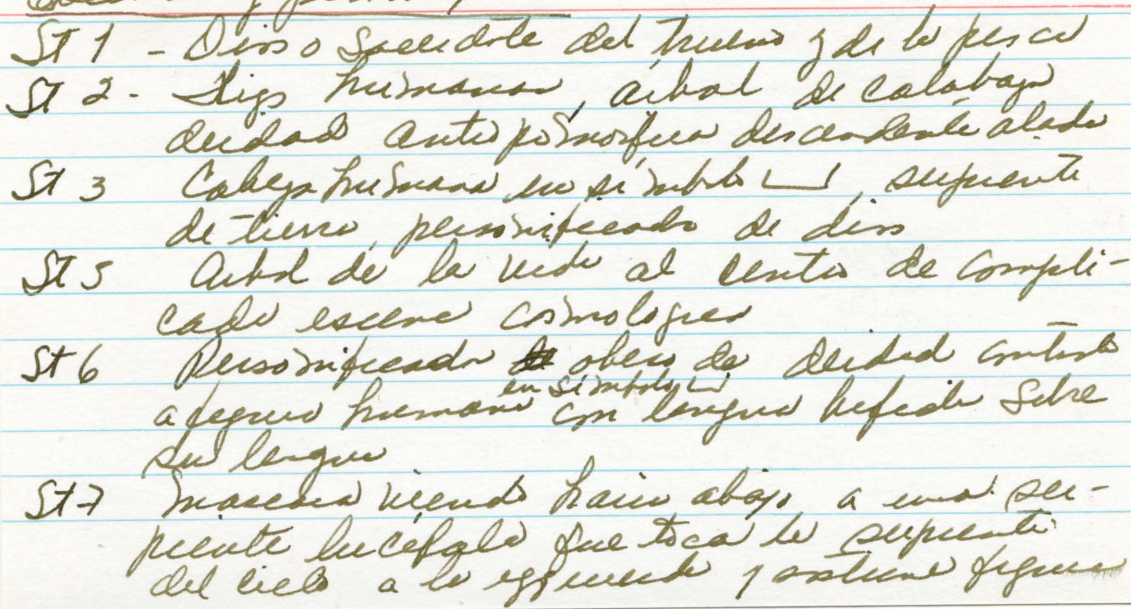 St 1 - Dios o Sacerdote del trueno y de la pesca
St 2 - humanas, árbol de calabaza
deidad antropomorfica descendente alada
St 3 Cabeza humana en símbolo ⎵, serpiente
de tierra, personificado de dios
St 5 Arbol de la vida al centro de compli-
cada escena cosmologica
St 6 Personificador obeso de deidad
a figura humana en símbolo ⎵ con lengua bifida sobre
su lengua
St 7 Mascara viendo hacia abajo, a una ser-
piente bicéfala que toca la serpiente
del cielo a la izquierda y sostiene figura